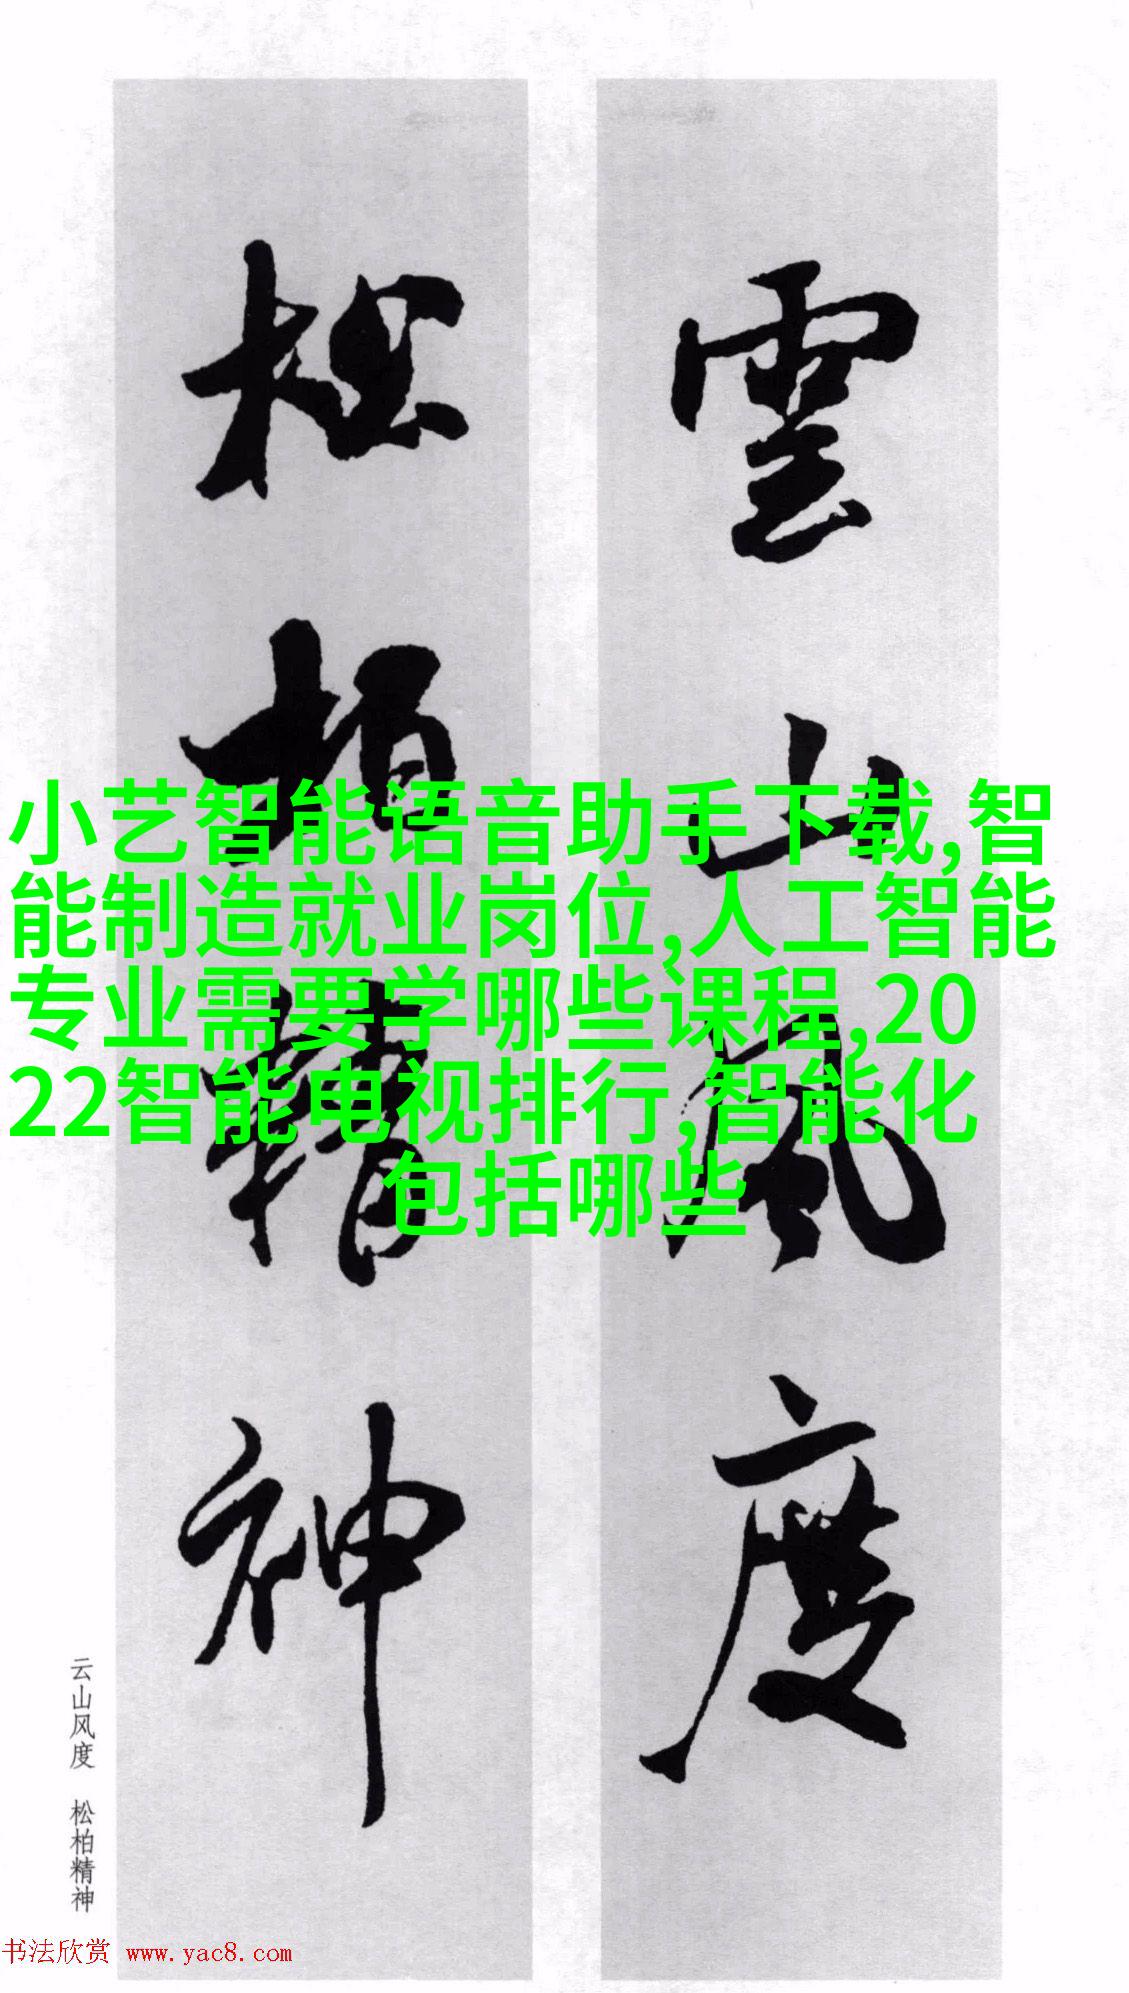 雲山風度
松柏精神
小艺智能语音助手下载,智
能制造就业岗位,人工智能
专业需要学哪些课程,20
22智能电视排行,智能化
包括哪些
云山风度 松柏精神
书法欣赏 www.yac8.com